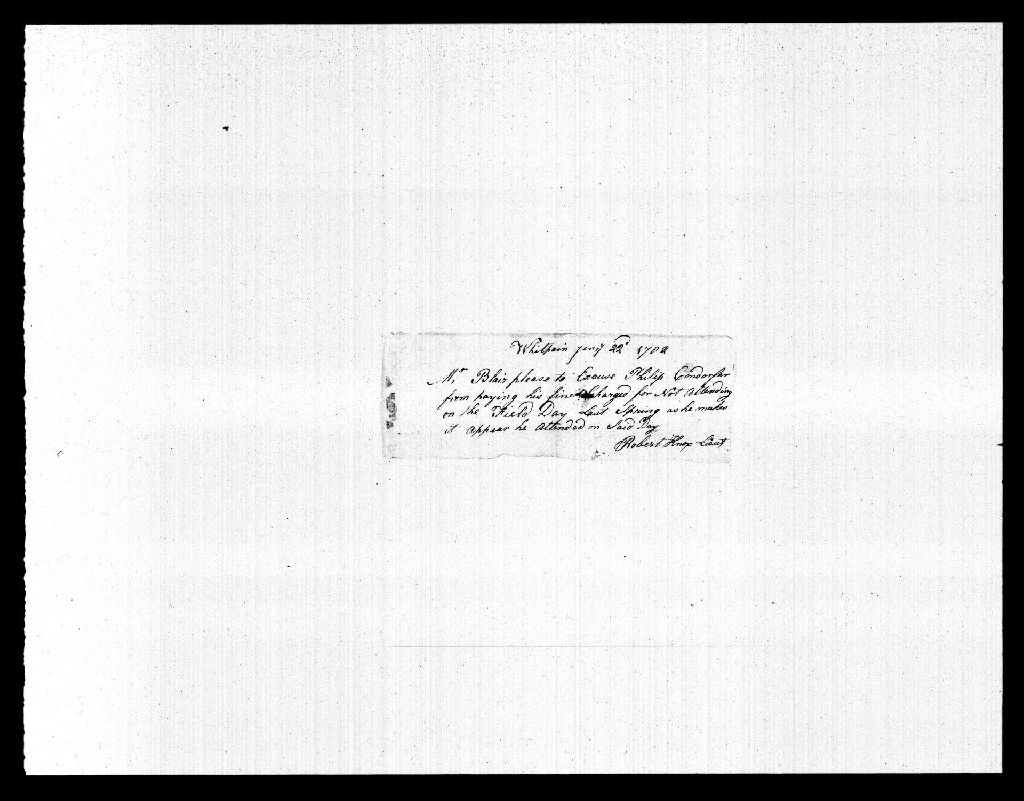 Whitpain Janry 22d 1782
Mr Blair please to Excuse Philip
from paying his fine Charged for Not Attending
on the Field Day Last Spring as he makes
it appear he attended on Said Day
Robert Knox Lieut